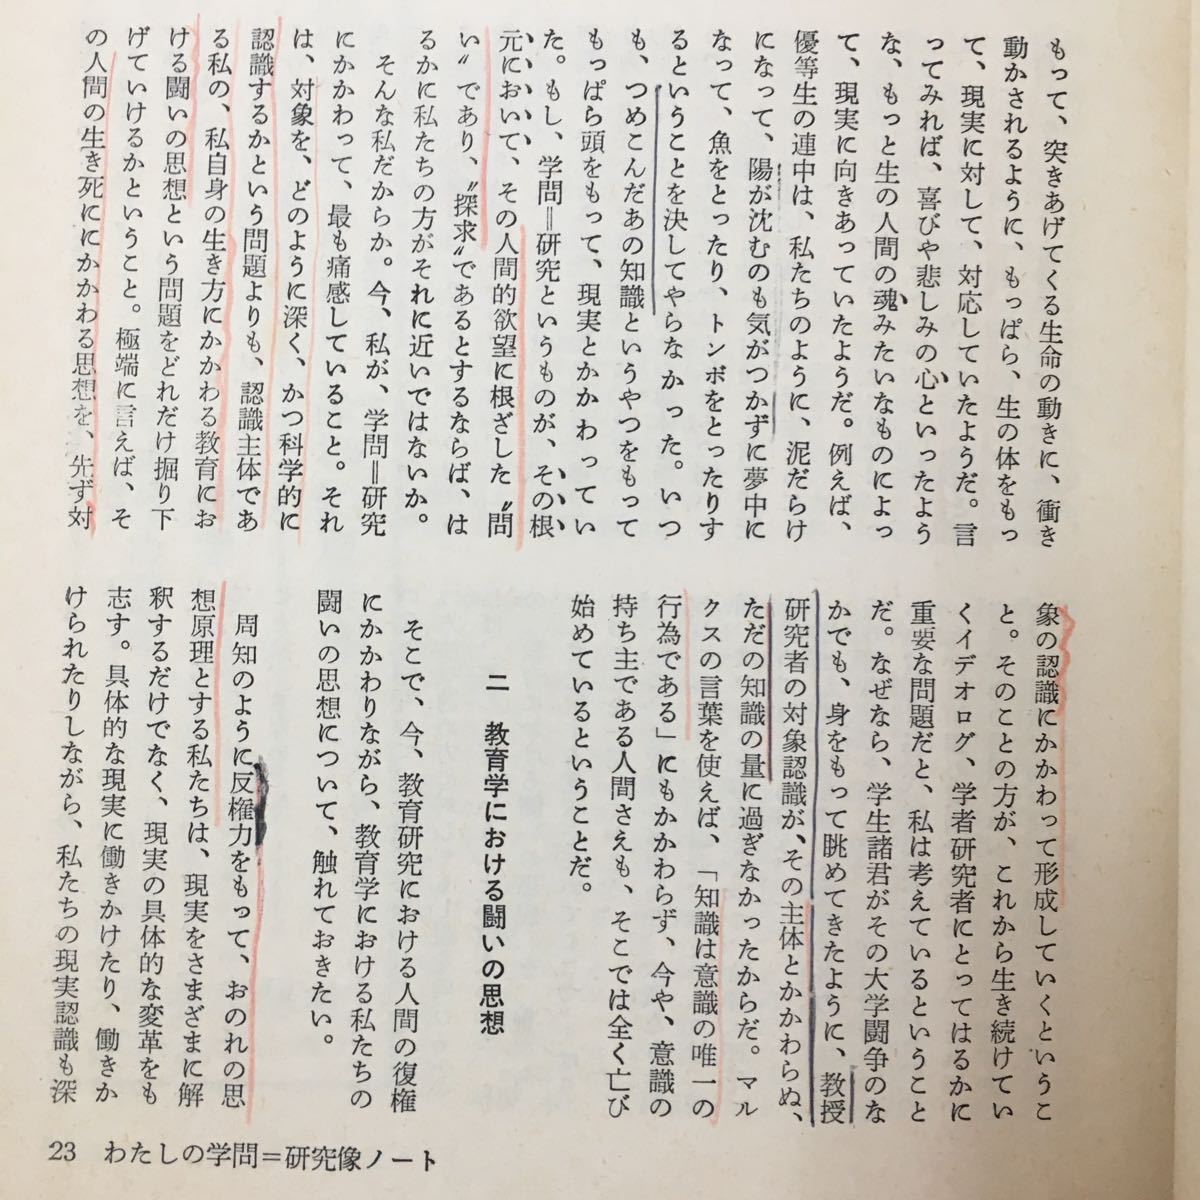 もって、突きあげてくる生命の動きに、衝き
動かされるように、もっぱら、生の体をもっ
て、現実に対して、対応していたようだ。言
ってみれば、喜びや悲しみの心といったよう
な、もっと生の人間の魂みたいなものによっ
て、現実に向きあっていたようだ。例えば、
優等生の連中は、私たちのように、泥だらけ
になって、陽が沈むのも気がつかずに夢中に
なって、魚をとったり、トンボをとったりす
るということを決してやらなかった。いつ
も、つめこんだあの知識というやつをもって
もっぱら頭をもって、現実とかかわってい
た。もし、学問＝研究というものが、その根
元において、その人間的欲望に根ざした〝問
い〟であり、〝探求〟であるとするならば、は
るかに私たちの方がそれに近いではないか。
そんな私だからか。今、私が、学問＝研究
にかかわって、最も痛感していること。それ
は、対象を、どのように深く、かつ科学的に
認識するかという問題よりも、認識主体であ
る私の、私自身の生き方にかかわる教育にお
ける闘いの思想という問題をどれだけ掘り下
げていけるかということ。極端に言えば、そ
の人間の生き死ににかかわる思想を、先ず対
象の認識にかかわって形成していくというこ
と。そのことの方が、これから生き続けてい
くイデオログ、学者研究者にとってはるかに
重要な問題だと、私は考えているということ
だ。なぜなら、学生諸君がその大学闘争のな
かでも、身をもって眺めてきたように、教授
研究者の対象認識が、その主体とかかわらぬ、
ただの知識の量に過ぎなかったからだ。マル
クスの言葉を使えば、「知識は意識の唯一の
行為である」にもかかわらず、今や、意識の
持ち主である人間さえも、そこでは全く亡び
始めているということだ。
二　教育学における闘いの思想
そこで、今、教育研究における人間の復権
にかかわりながら、教育学における私たちの
闘いの思想について、触れておきたい。
周知のように反権力をもって、おのれの思
想原理とする私たちは、現実をさまざまに解
釈するだけでなく、現実の具体的な変革をも
志す。具体的な現実に働きかけたり、働きか
けられたりしながら、私たちの現実認識も深
23　わたしの学問＝研究像ノート